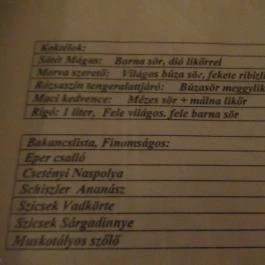 Koktélok:
Sötét Mágus: Barna sör, dió likőrrel
Morva szerető: Világos búza sör, fekete ribizli
Rózsaszín tengeralattjáró: Búzasör meggylik
Maci kedvence: Mézes sör + málna likőr
Rigó: 1 liter, Fele világos, fele barna sör
Bakancslista, Finomságos:
Eper csalló
Csetényi Naspolya
Schiszler Ananász
Szicsek Vadkörte
Szicsek Sárgadinnye
Muskotályos szőlő